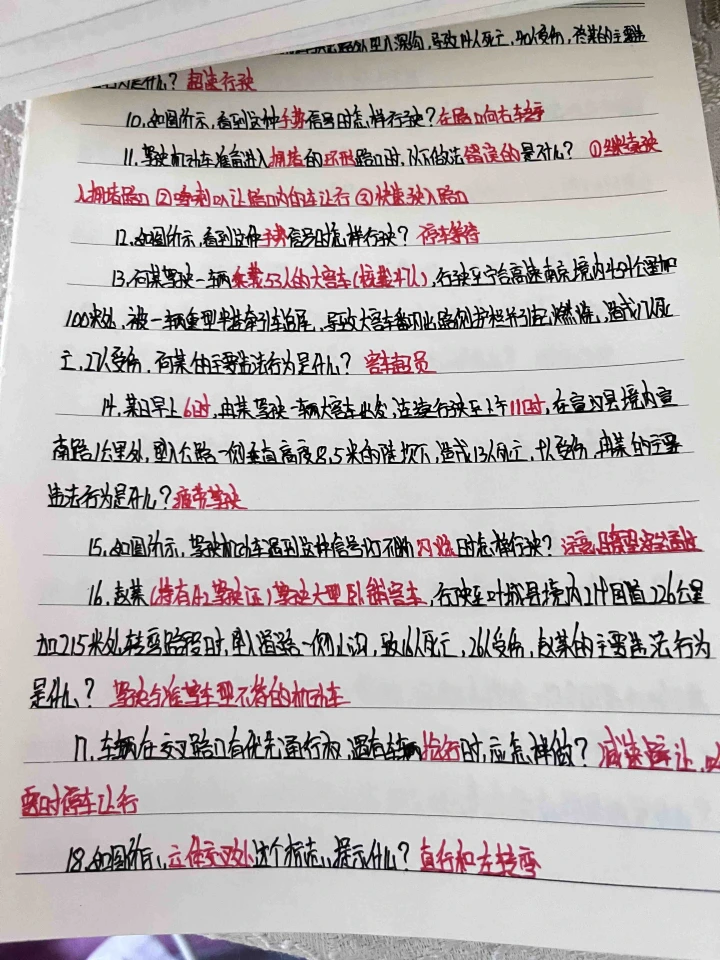 坠入深沟,导致14人死亡,40人受伤,徐某的主要违
法行为是什么?超速行驶
10.如图所示,看到这种手势信号时怎样行驶?在路口向右转弯
11.驾驶机动车准备进入拥堵的环形路口时,以下做法错误的是什么?①继续驶
入拥堵路口②鸣喇叭让路口内的车让行③快速驶入路口
12.如图所示,看到这种手势信号时怎样行驶?停车等待
13.何某驾驶一辆乘载53人的大客车(核载47人),行驶至宁合高速南京境内454公里加
100米处,被一辆重型半挂牵引车追尾,导致大客车翻出路侧护栏并引起燃烧,造成17人死
亡,27人受伤,何某的主要违法行为是什么?客车超员
14.某日早上6时,冉某驾驶一辆大客车出发,连续行驶至上午11时,在宣汉县境内宣
南路1公里处,坠入公路一侧垂直高度8.5米的陡坎下,造成13人死亡,9人受伤,冉某的主要
违法行为是什么?疲劳驾驶
15.如图所示,驾驶机动车遇到这种信号灯不断闪烁时怎样行驶?注意瞭望安全通过
16.赵某(持有A2驾驶证)驾驶大型卧铺客车,行驶至叶城县境内219国道226公里
加215米处转弯路段时,坠入道路一侧山沟,致16人死亡,26人受伤,赵某的主要违法行为
是什么?驾驶与准驾车型不符的机动车
17.车辆在交叉路口有优先通行权,遇有车辆抢行时,应怎样做?减速避让,必
要时停车让行
18.如图所示,立体交叉处这个标志,提示什么?直行和左转弯